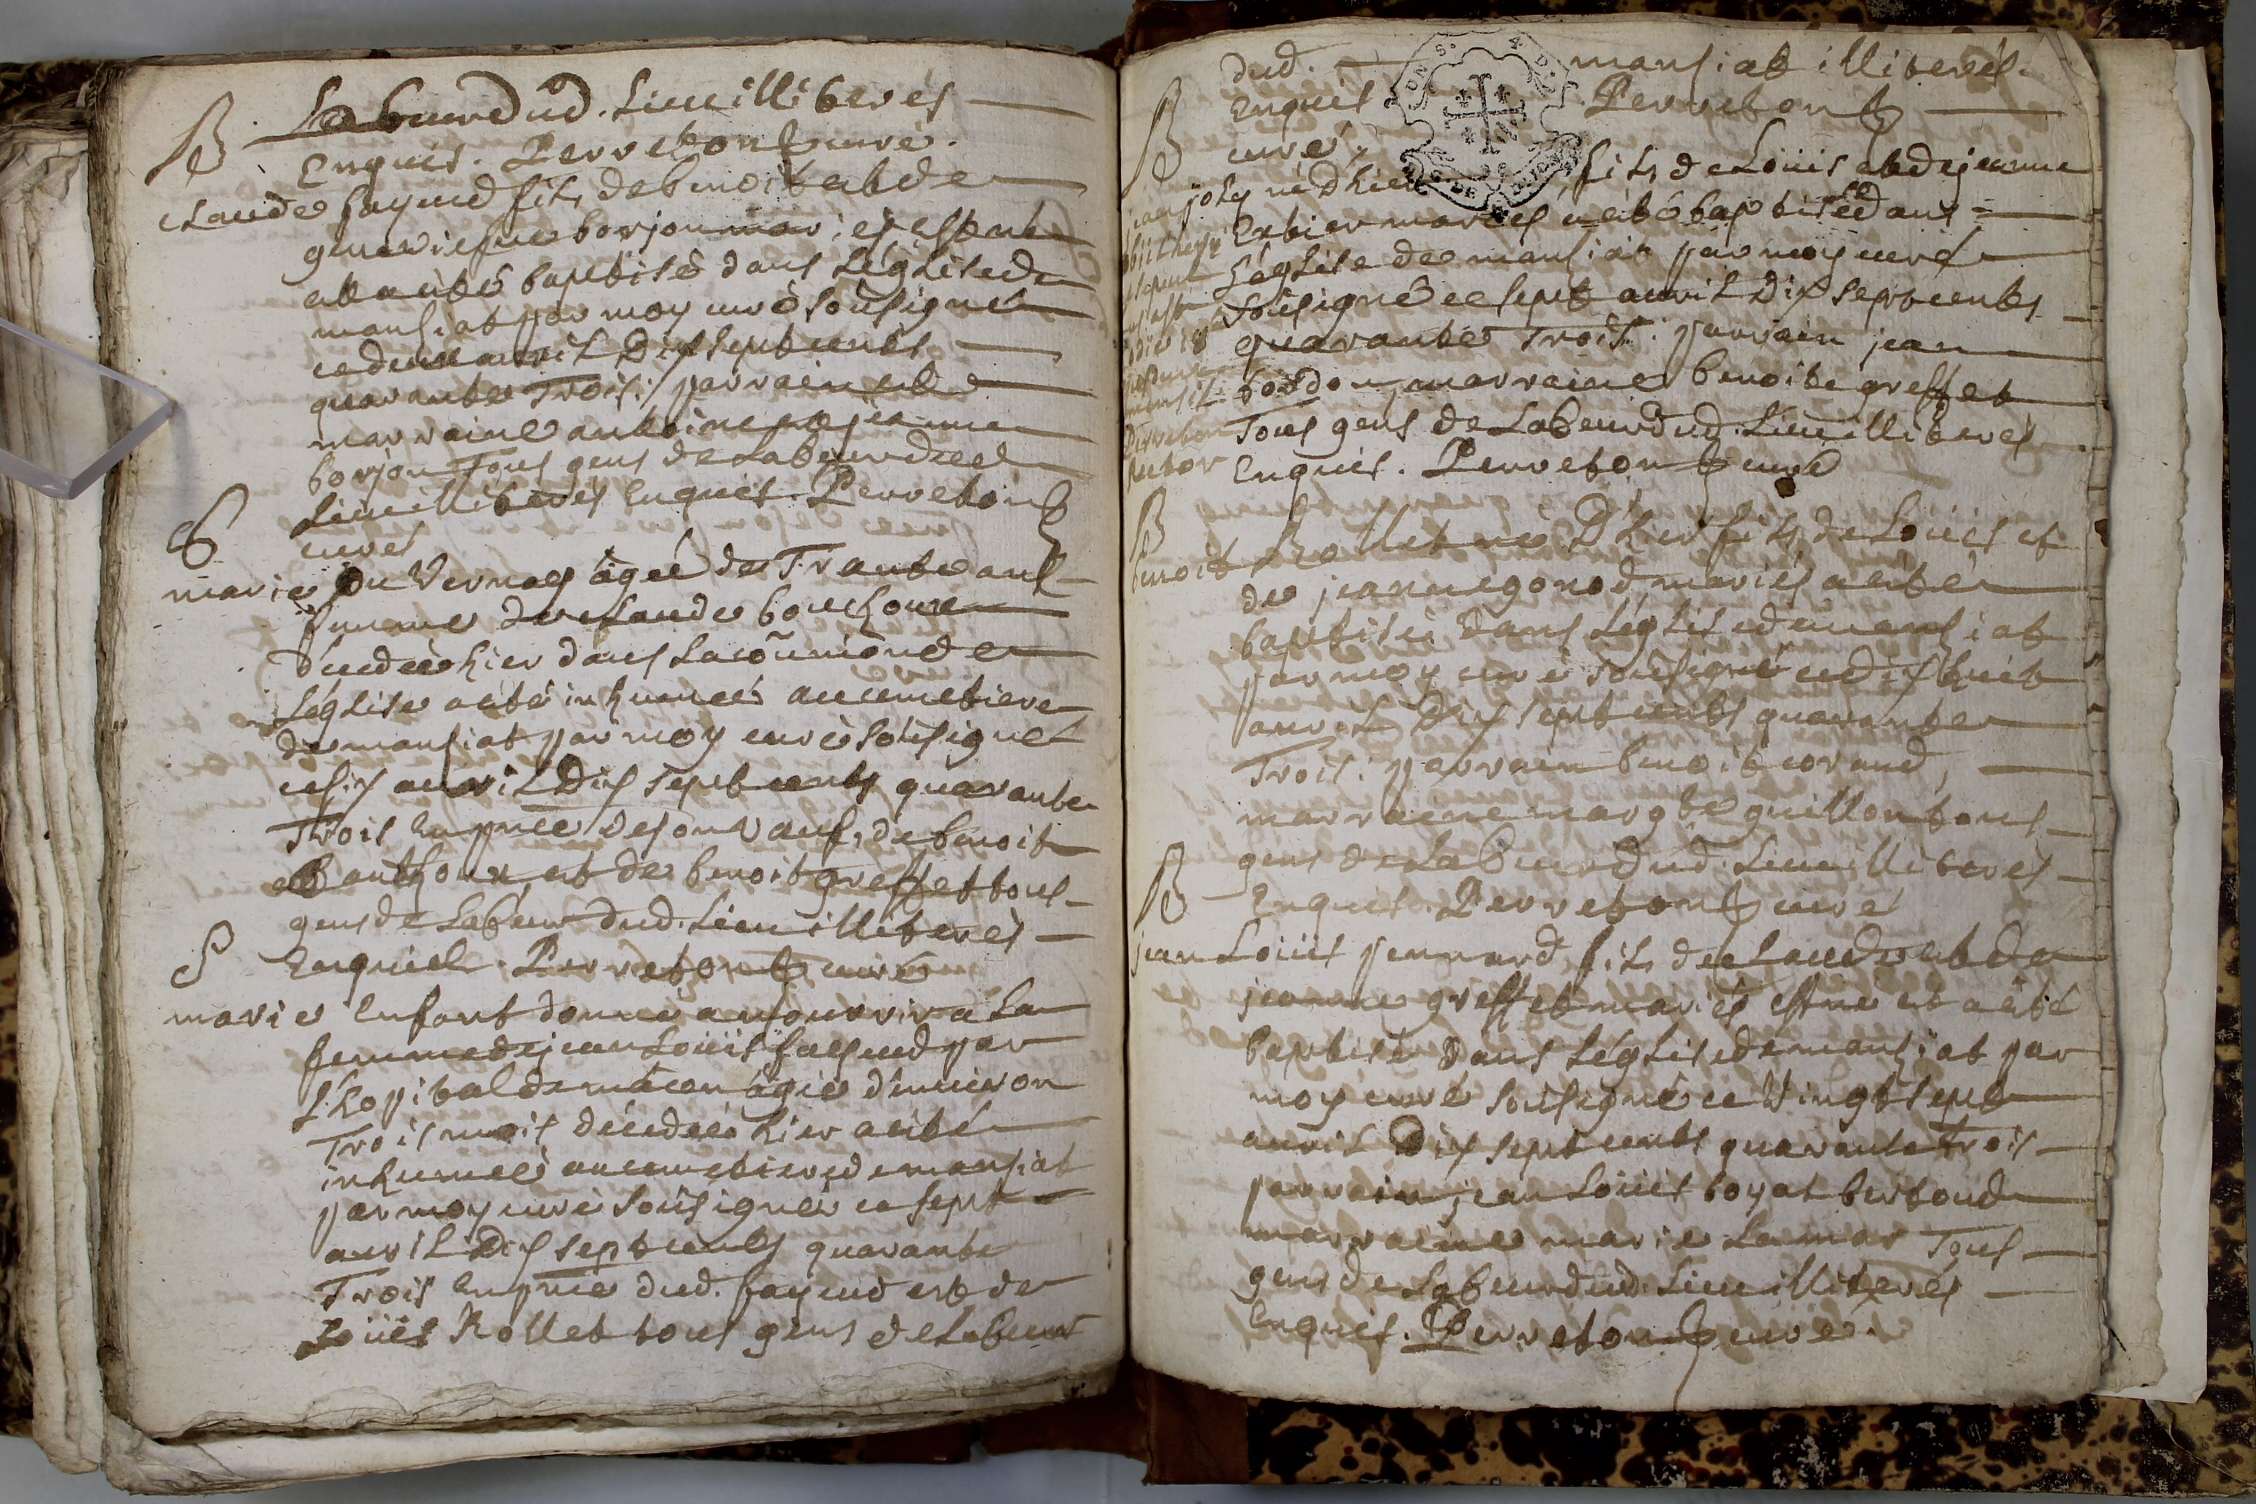 Labeur dud. Lieu illiterés
Enquis. Perretont curé.
B
Claude fayend fils de benoit et de
geneviefve borjon mariés est né
et a été baptisé dans L'église de
mansiat par moy curé sousigné
ce deux avril Dix sept cents
quarante Trois: parrain et
marraine antoine et jeanne
borjon Tous gens de Labeur dud
Lieu illiterés Enquis. Perretont
curé
S
marie Du Vernay agée de Trante ans
femme de claude bouchoux
décedée hier dans La coṁunion de
L'église a été inhumée au cemetiere
de mansiat par moy curé sousigné
ce six avril Dix sept cents quarante
Trois En pñce de son d. de benoit
et de benoit greffet tous
gens de Labeur dud. Lieu illiterés
Enquis. Perretont curé
S
marie Enfant donné a nourrir a La
femme de jean Loüis fayend par
L'hopital de mâcon agée d'environ
Trois mois décedée hier a été
inhumée au cemetiere de mansiat
par moy curé sousigné ce sept
avril Dix sept cents quarante
Trois En pñce dud. fayend et de
Loüis Rollet tous gens de Labeur
dud. mansiat illiterés.
Enquis Perretont
curé.
B
jean joly né d'hier fils de Loüis et de jeanne
mariés a été baptisé dans
L'église de mansiat par moy curé
sousigné ce sept avril Dix sept cents
quarante Trois: parrain jean
bordon, marraine benoite greffet
Tous gens de Labeur dud. Lieu illiterés
Enquis. Perretont curé
Perreton
Rector
B
benoit Rollet né D'hier fils de Loüis et
de jeanne gonod, mariés a été
baptisé dans L'église de mansiat
par moy curé sousigné ce dix huit
avril Dix sept cents quarante
Trois: parrain benoit corand,
marraine margte guillon tous
gens de Labeur dud. Lieu illiterés
Enquis. Perretont curé
B
jean Loüis pennard fils de claude et de
jeanne greffet mariés est né et a été
baptisé dans L'église de mansiat par
moy curé sousigné ce Vingt sept
avril Dix sept cents quarante Trois
parrain jean Loüis boyat bertoud
marraine marie Lamar Tous
gens de Labeur dud. Lieu illiterés
Enquis. Perretont curé.